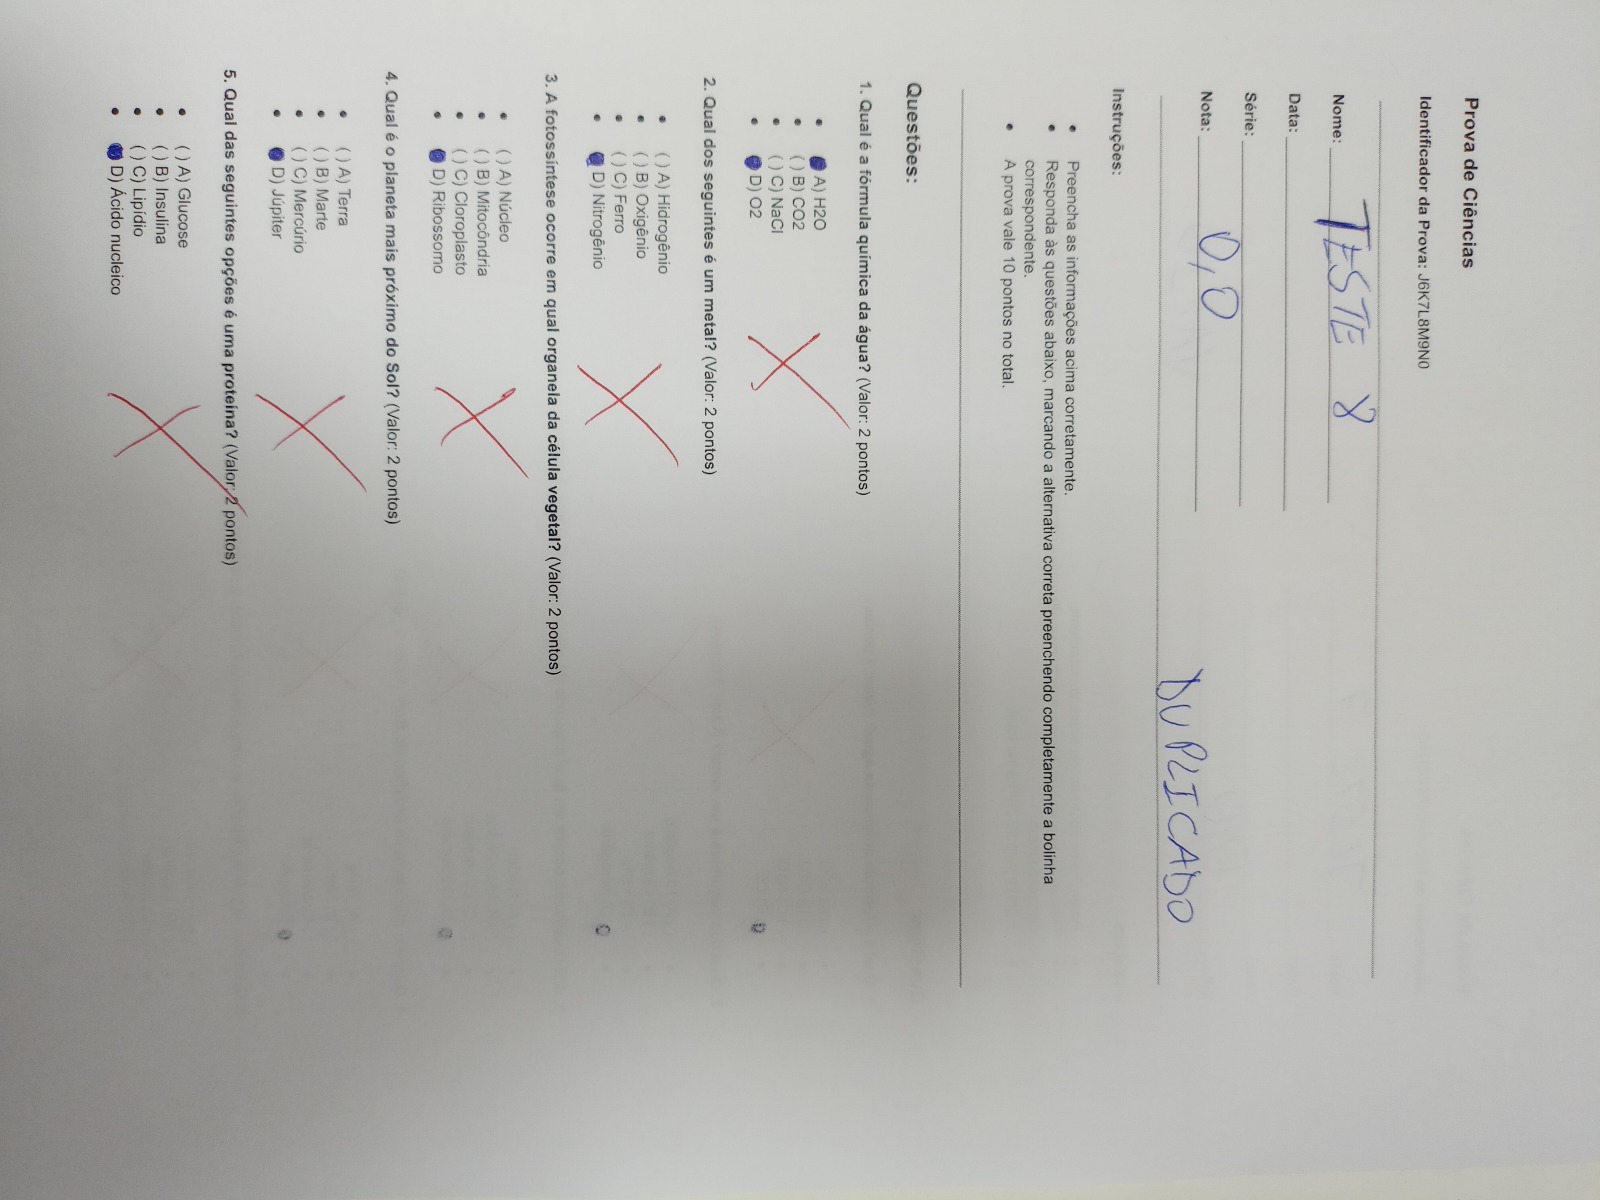 Prova de Ciências
Identificador da Prova: J6K7L8M9N0
Nome: TESTE 8
Data:
Série:
Nota: 0,0
DUPLICADO
Instruções:
• Preencha as informações acima corretamente.
• Responda às questões abaixo, marcando a alternativa correta preenchendo completamente a bolinha
correspondente.
• A prova vale 10 pontos no total.
Questões:
1. Qual é a fórmula química da água? (Valor: 2 pontos)
• A) H2O
• ( ) B) CO2
• ( ) C) NaCl
• D) O2
2. Qual dos seguintes é um metal? (Valor: 2 pontos)
• ( ) A) Hidrogênio
• ( ) B) Oxigênio
• ( ) C) Ferro
• D) Nitrogênio
3. A fotossíntese ocorre em qual organela da célula vegetal? (Valor: 2 pontos)
• ( ) A) Núcleo
• ( ) B) Mitocôndria
• ( ) C) Cloroplasto
• D) Ribossomo
4. Qual é o planeta mais próximo do Sol? (Valor: 2 pontos)
• ( ) A) Terra
• ( ) B) Marte
• ( ) C) Mercúrio
• D) Júpiter
5. Qual das seguintes opções é uma proteína? (Valor: 2 pontos)
• ( ) A) Glucose
• ( ) B) Insulina
• ( ) C) Lipídio
• D) Ácido nucleico